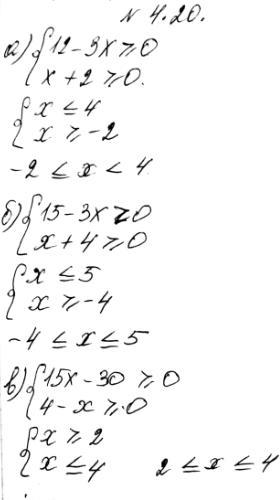 № 4.20.
а) { 12 - 3x ≥ 0
x + 2 ≥ 0.
{ x ≤ 4
x ≥ -2
-2 ≤ x < 4
б) { 15 - 3x ≥ 0
x + 4 ≥ 0
{ x ≤ 5
x ≥ -4
-4 ≤ x ≤ 5
в) { 15x - 30 ≥ 0
4 - x ≥ 0
{ x ≥ 2
x ≤ 4 2 ≤ x ≤ 4